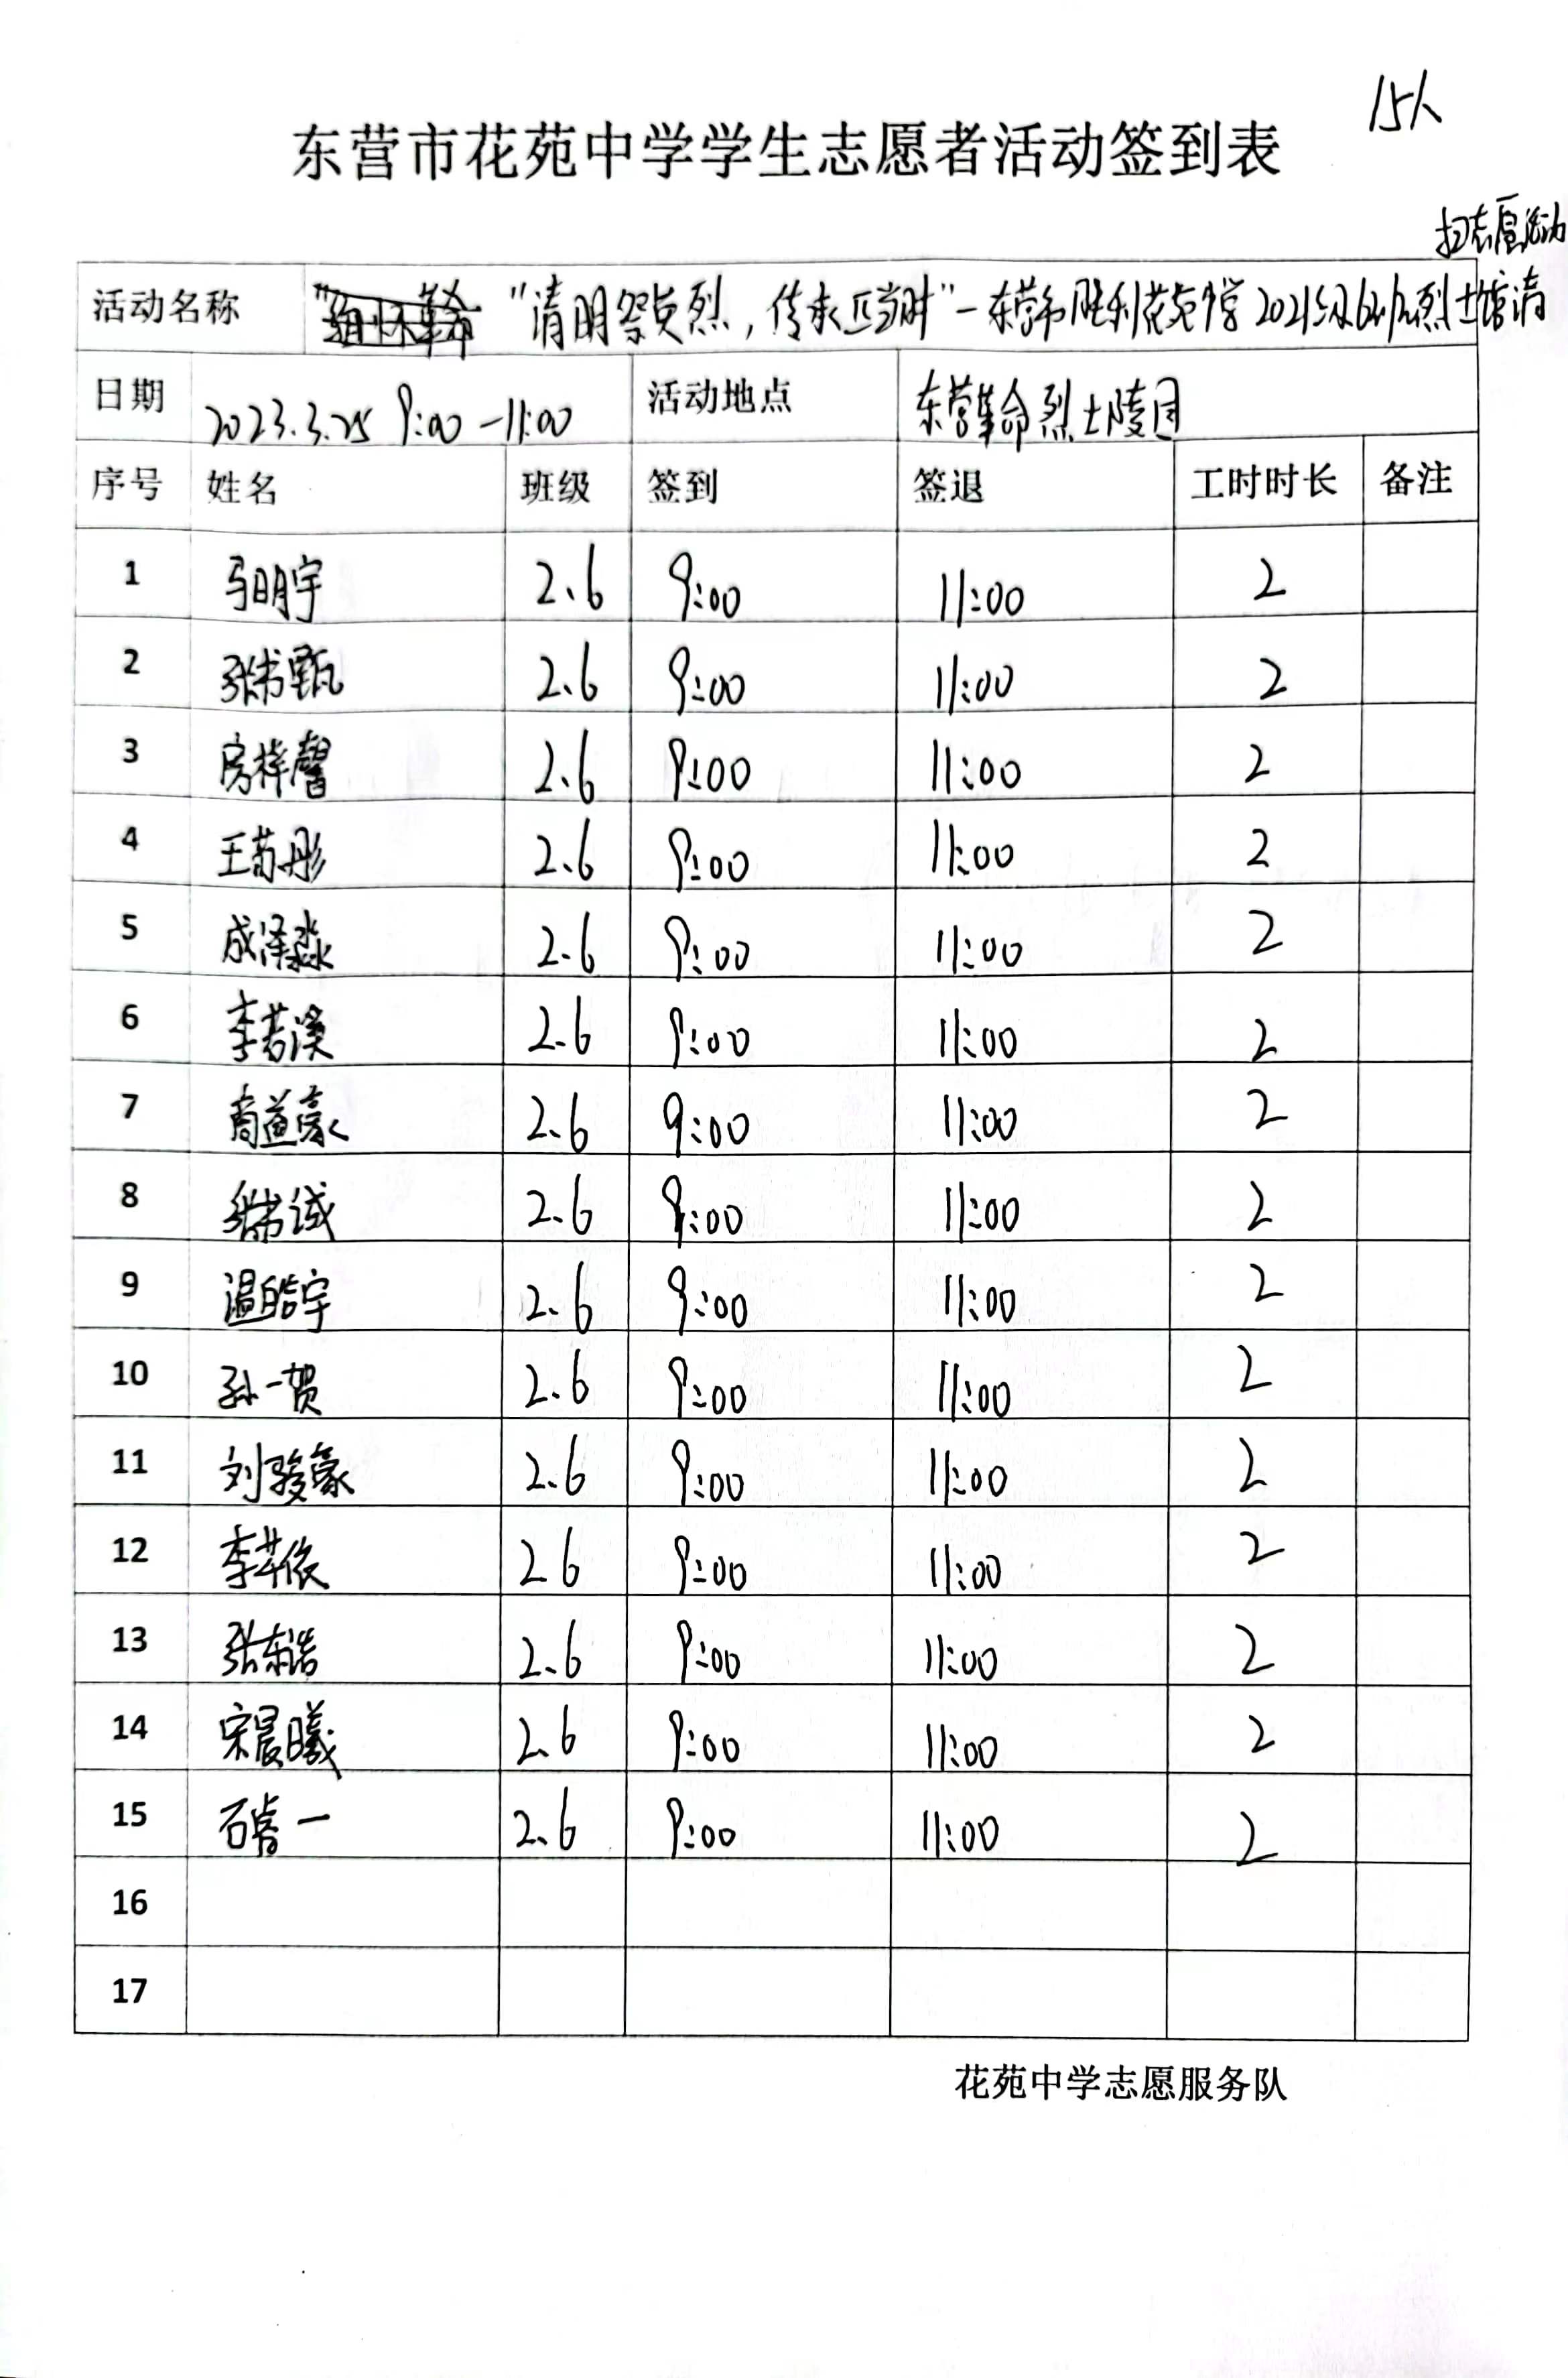 15人
东营市花苑中学学生志愿者活动签到表
扫志愿活动
活动名称 "清明祭英烈，传承正当时"—东营市胜利花苑中学2021级6中队烈士馆清
日期 2023.3.25 9:00-11:00 活动地点 东营革命烈士陵园
序号 姓名 班级 签到 签退 工时时长 备注
1 马明宇 2.6 9:00 11:00 2
2 张书甄 2.6 9:00 11:00 2
3 房梓馨 2.6 9:00 11:00 2
4 王苏彤 2.6 9:00 11:00 2
5 成泽淼 2.6 9:00 11:00 2
6 李若溪 2.6 9:00 11:00 2
7 商益豪 2.6 9:00 11:00 2
8 张书诚 2.6 9:00 11:00 2
9 温皓宇 2.6 9:00 11:00 2
10 孙一贺 2.6 9:00 11:00 2
11 刘骏豪 2.6 9:00 11:00 2
12 李芊依 2.6 9:00 11:00 2
13 张东浩 2.6 9:00 11:00 2
14 宋晨曦 2.6 9:00 11:00 2
15 石睿一 2.6 9:00 11:00 2
16
17
花苑中学志愿服务队